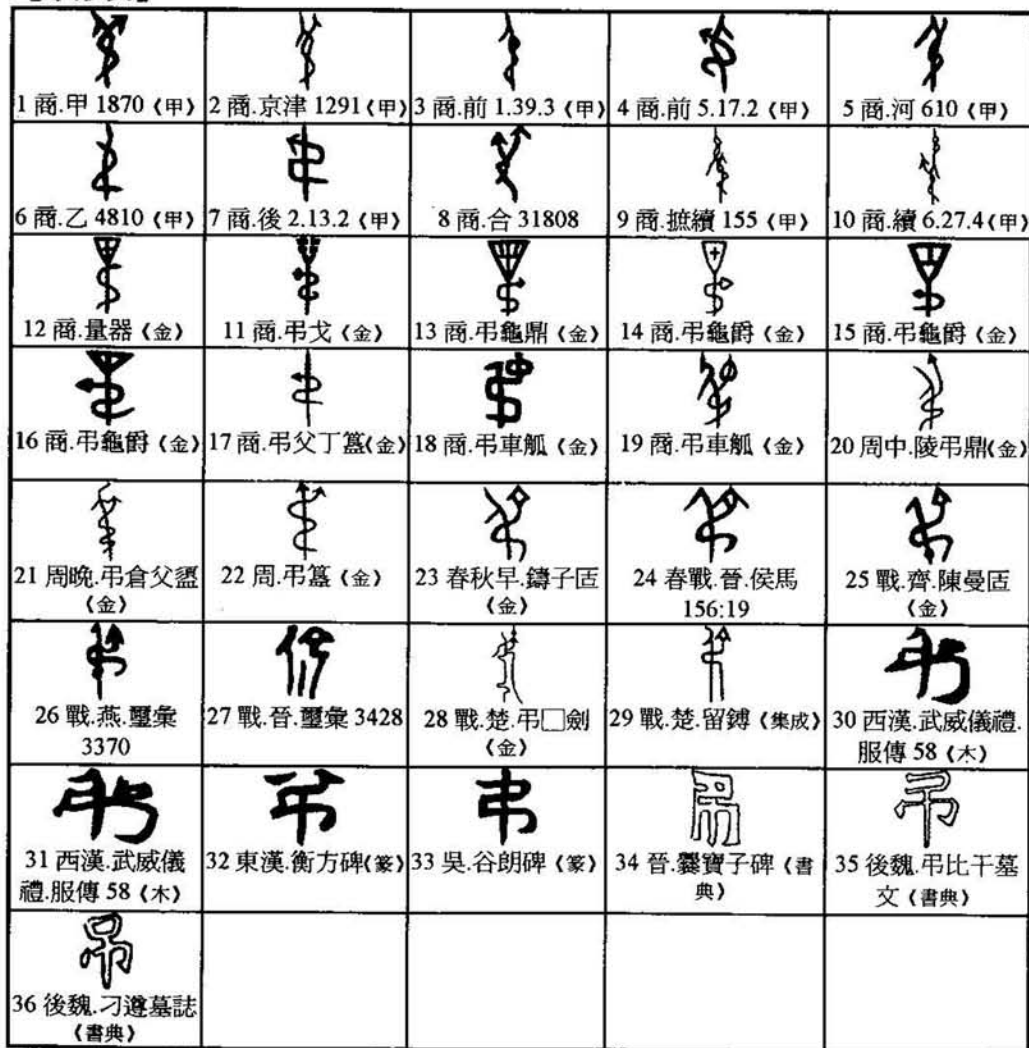 1 商.甲 1870〈甲〉
2 商.京津 1291〈甲〉
3 商.前 1.39.3〈甲〉
4 商.前 5.17.2〈甲〉
5 商.河 610〈甲〉
6 商.乙 4810〈甲〉
7 商.後 2.13.2〈甲〉
8 商.合 31808
9 商.摭續 155〈甲〉
10 商.續 6.27.4〈甲〉
12 商.量器〈金〉
11 商.弔戈〈金〉
13 商.弔龜鼎〈金〉
14 商.弔龜爵〈金〉
15 商.弔龜爵〈金〉
16 商.弔龜爵〈金〉
17 商.弔父丁簋〈金〉
18 商.弔車觚〈金〉
19 商.弔車觚〈金〉
20 周中.陵弔鼎〈金〉
21 周晚.弔倉父盨
〈金〉
22 周.弔簋〈金〉
23 春秋早.鑄子匜
〈金〉
24 春戰.晉.侯馬
156:19
25 戰.齊.陳曼匜
〈金〉
26 戰.燕.璽彙
3370
27 戰.晉.璽彙 3428
28 戰.楚.弔□劍
〈金〉
29 戰.楚.留鎛〈集成〉
30 西漢.武威儀禮.
服傳 58〈木〉
31 西漢.武威儀
禮.服傳 58〈木〉
32 東漢.衡方碑〈篆〉
33 吳.谷朗碑〈篆〉
34 晉.爨寶子碑〈書
典〉
35 後魏.弔比干墓
文〈書典〉
36 後魏.刁遵墓誌
〈書典〉